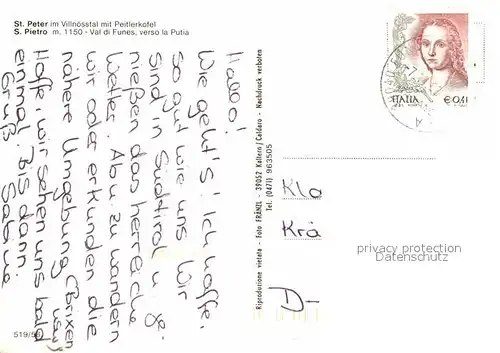 St. Peter im Villnösstal mit Peitlerkofel
S. Pietro m. 1150 - Val di Funes, verso la Putia
Hallo!
Wie geht's! Ich hoffe
so gut wie uns. Wir
sind in Südtirol u. ge-
nießen das herrliche
Wetter. Ab u. zu wandern
wir oder erkunden die
nähere Umgebung (Brixen
usw)
Hoffe, wir sehen uns bald
einmal. Bis dann
Gruß
519/59
Riproduzione vietata - Foto FRÄNZL - 39052 Kaltern / Caldaro - Nachdruck verboten
Tel. (0471) 963505
ITALIA € 0,41
Kla
Krä
D-
privacy protection
Datenschutz